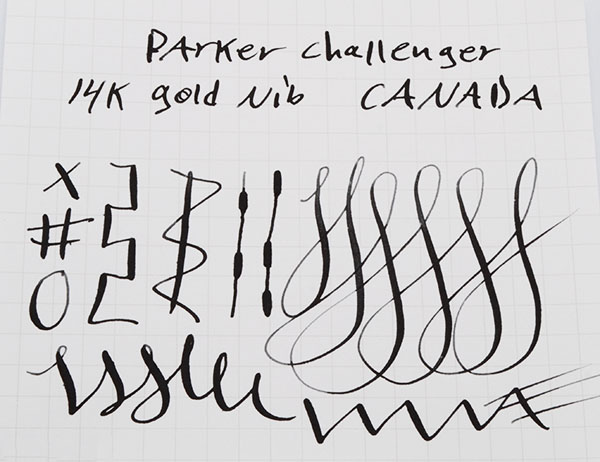 Parker challenger
14K gold Nib CANADA
X
#
O